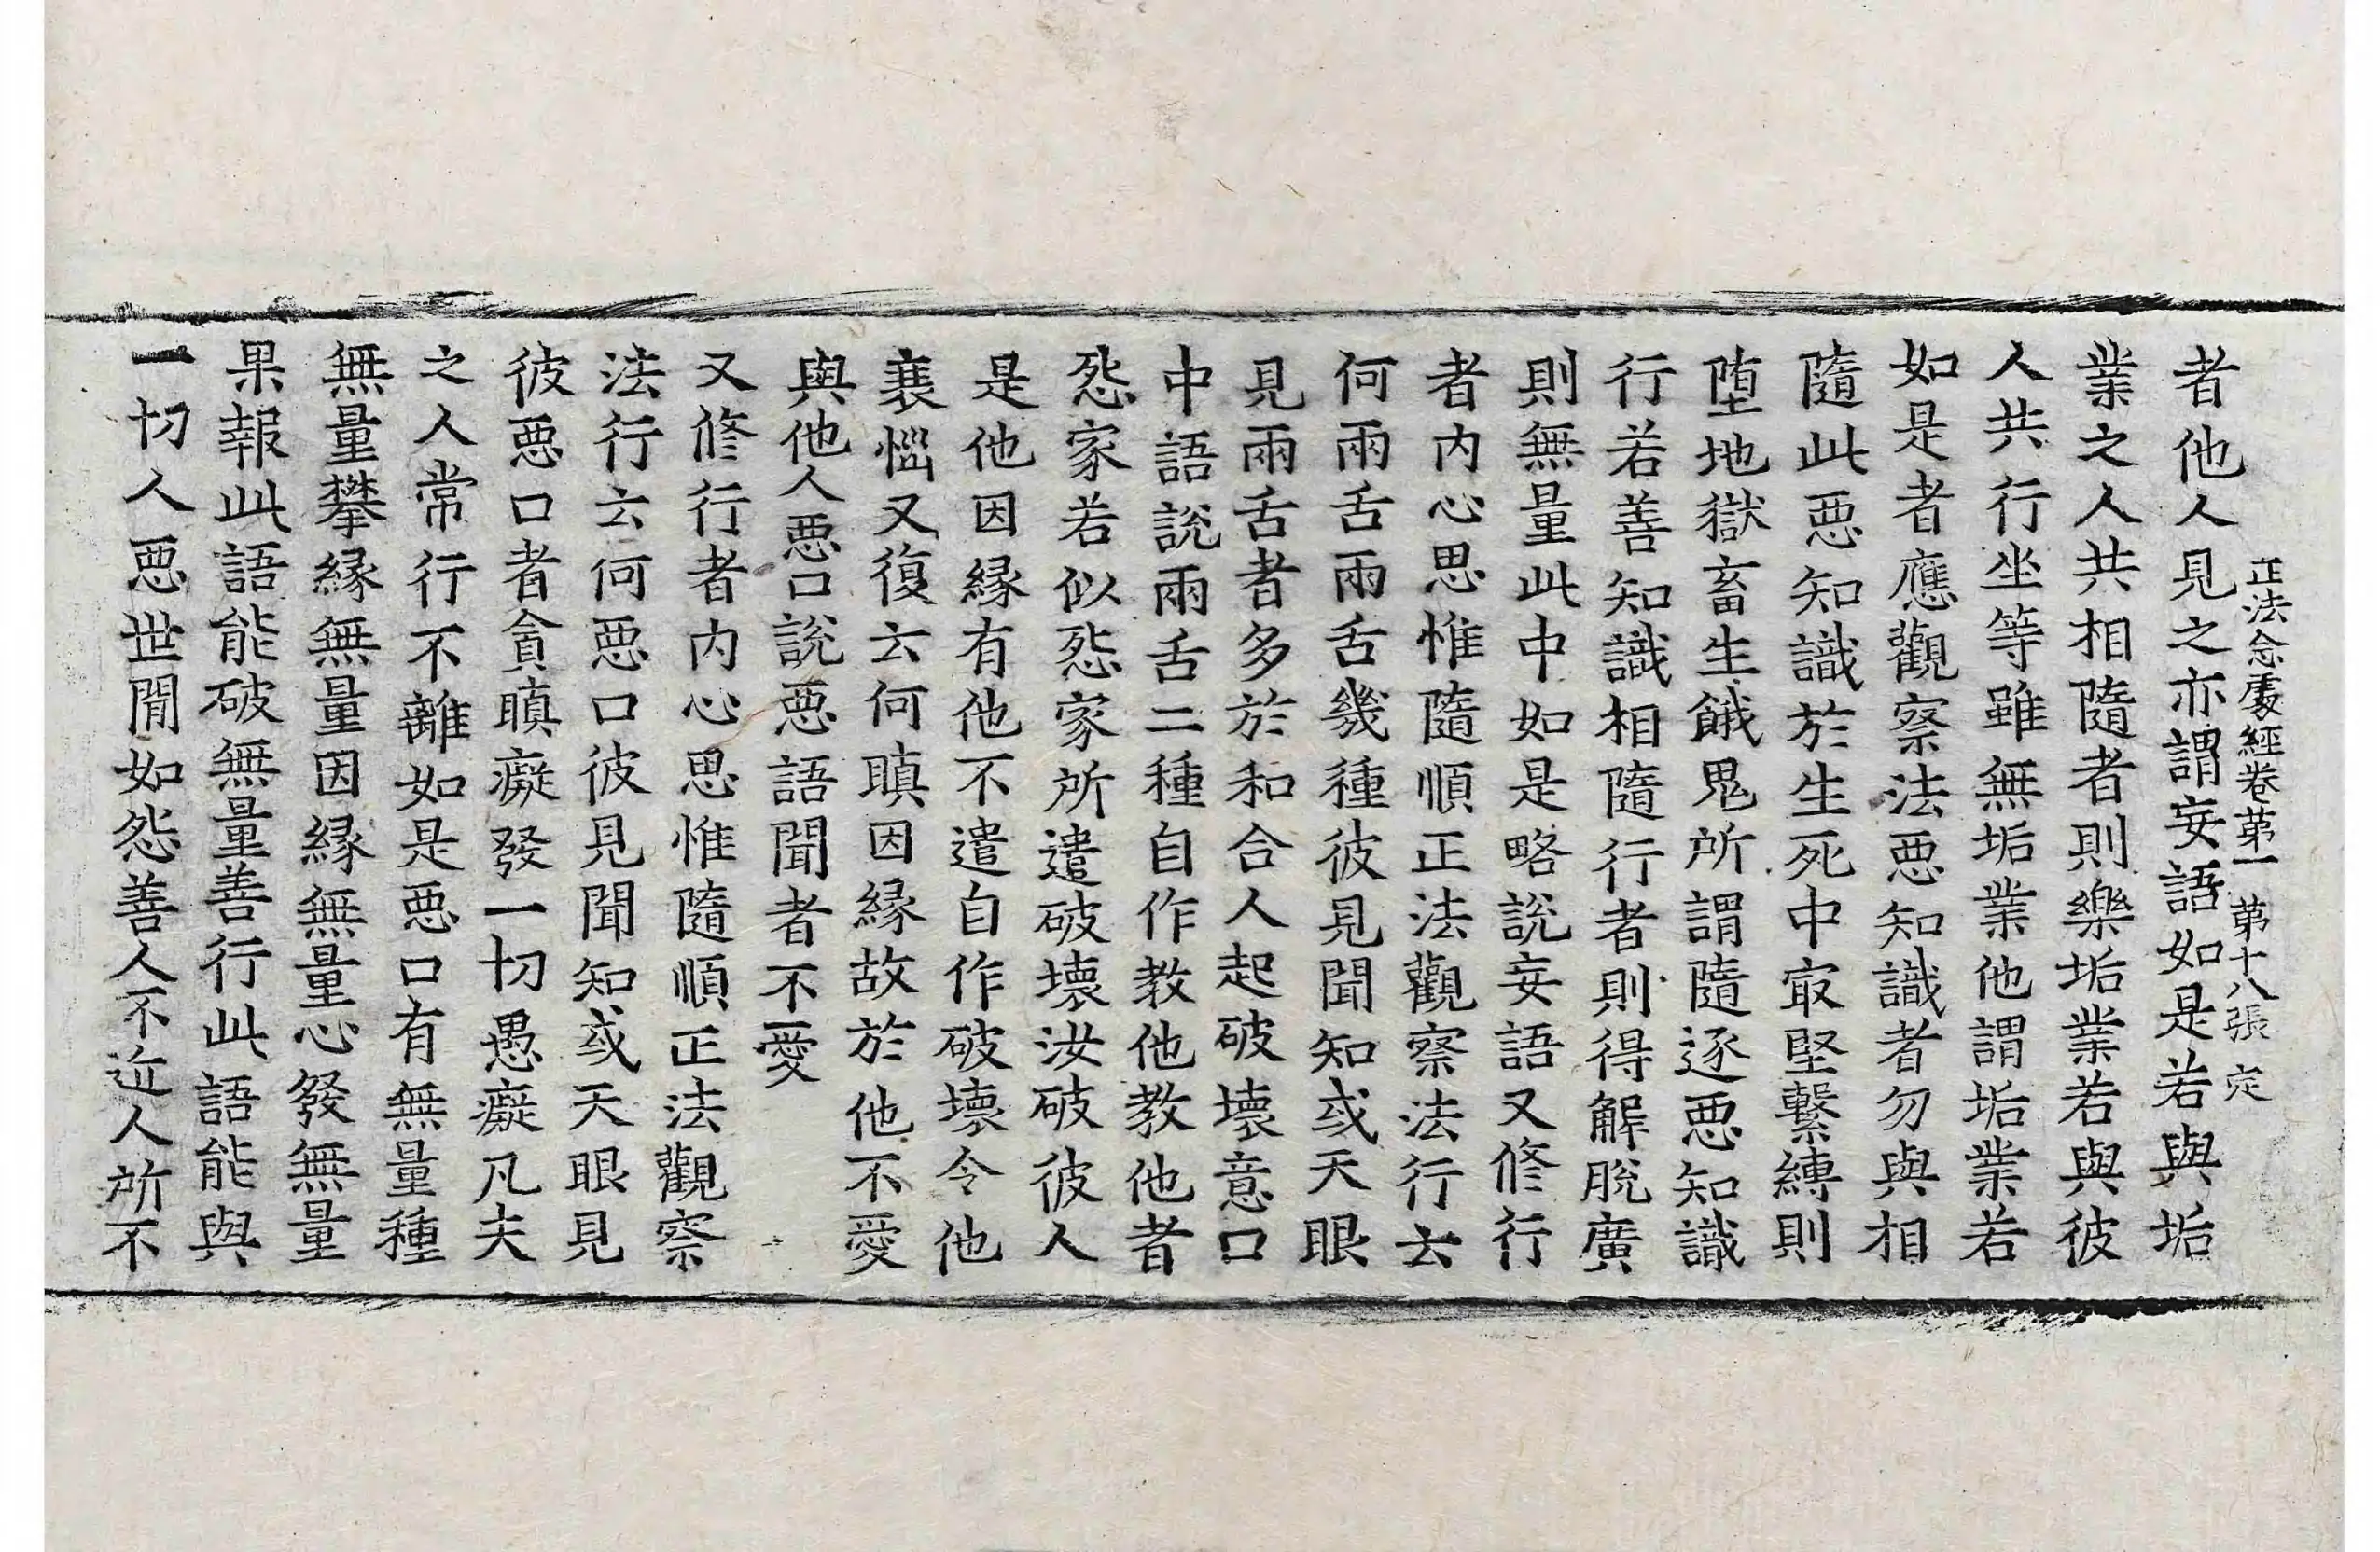 正法念處經卷第一 第十八張 定
者他人見之亦謂妄語如是若與垢
業之人共相隨者則樂垢業若與彼
人共行坐等雖無垢業他謂垢業若
如是者應觀察法惡知識者勿與相
隨此惡知識於生死中㝡堅繫縛則
墮地獄畜生餓鬼所謂隨逐惡知識
行若善知識相隨行者則得解脫廣
則無量此中如是略說妄語又修行
者內心思惟隨順正法觀察法行云
何兩舌兩舌幾種彼見聞知或天眼
見兩舌者多於和合人起破壞意口
中語說兩舌二種自作教他教他者
怨家若似怨家所遣破壞汝破彼人
是他因緣有他不遣自作破壞令他
衰惱又復云何瞋因緣故於他不愛
與他人惡口說惡語聞者不愛
又修行者內心思惟隨順正法觀察
法行云何惡口彼見聞知或天眼見
彼惡口者貪瞋癡發一切愚癡凡夫
之人常行不離如是惡口有無量種
無量攀緣無量因緣無量心發無量
果報此語能破無量善行此語能與
一切人惡世間如怨善人不近人所不